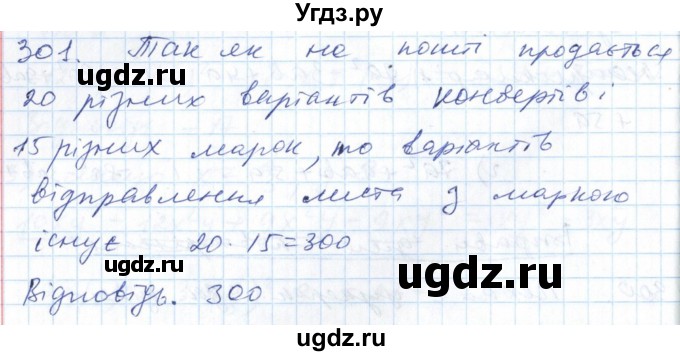 Угдз.ру
301. Так як на пошті продається
20 різних варіантів конвертів і
15 різних марок, то варіантів
відправлення листа з маркою
існує 20 · 15 = 300
угдз.ру
угдз.ру
Відповідь. 300
ugdz.ru
ugdz.ru